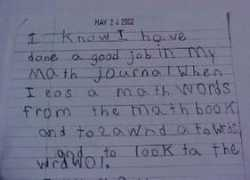 MAY 24 2002
I know I have
done a good job in my
math journal when
I eos a math words
from the math book
and to
and to look ta the
wrdwol.